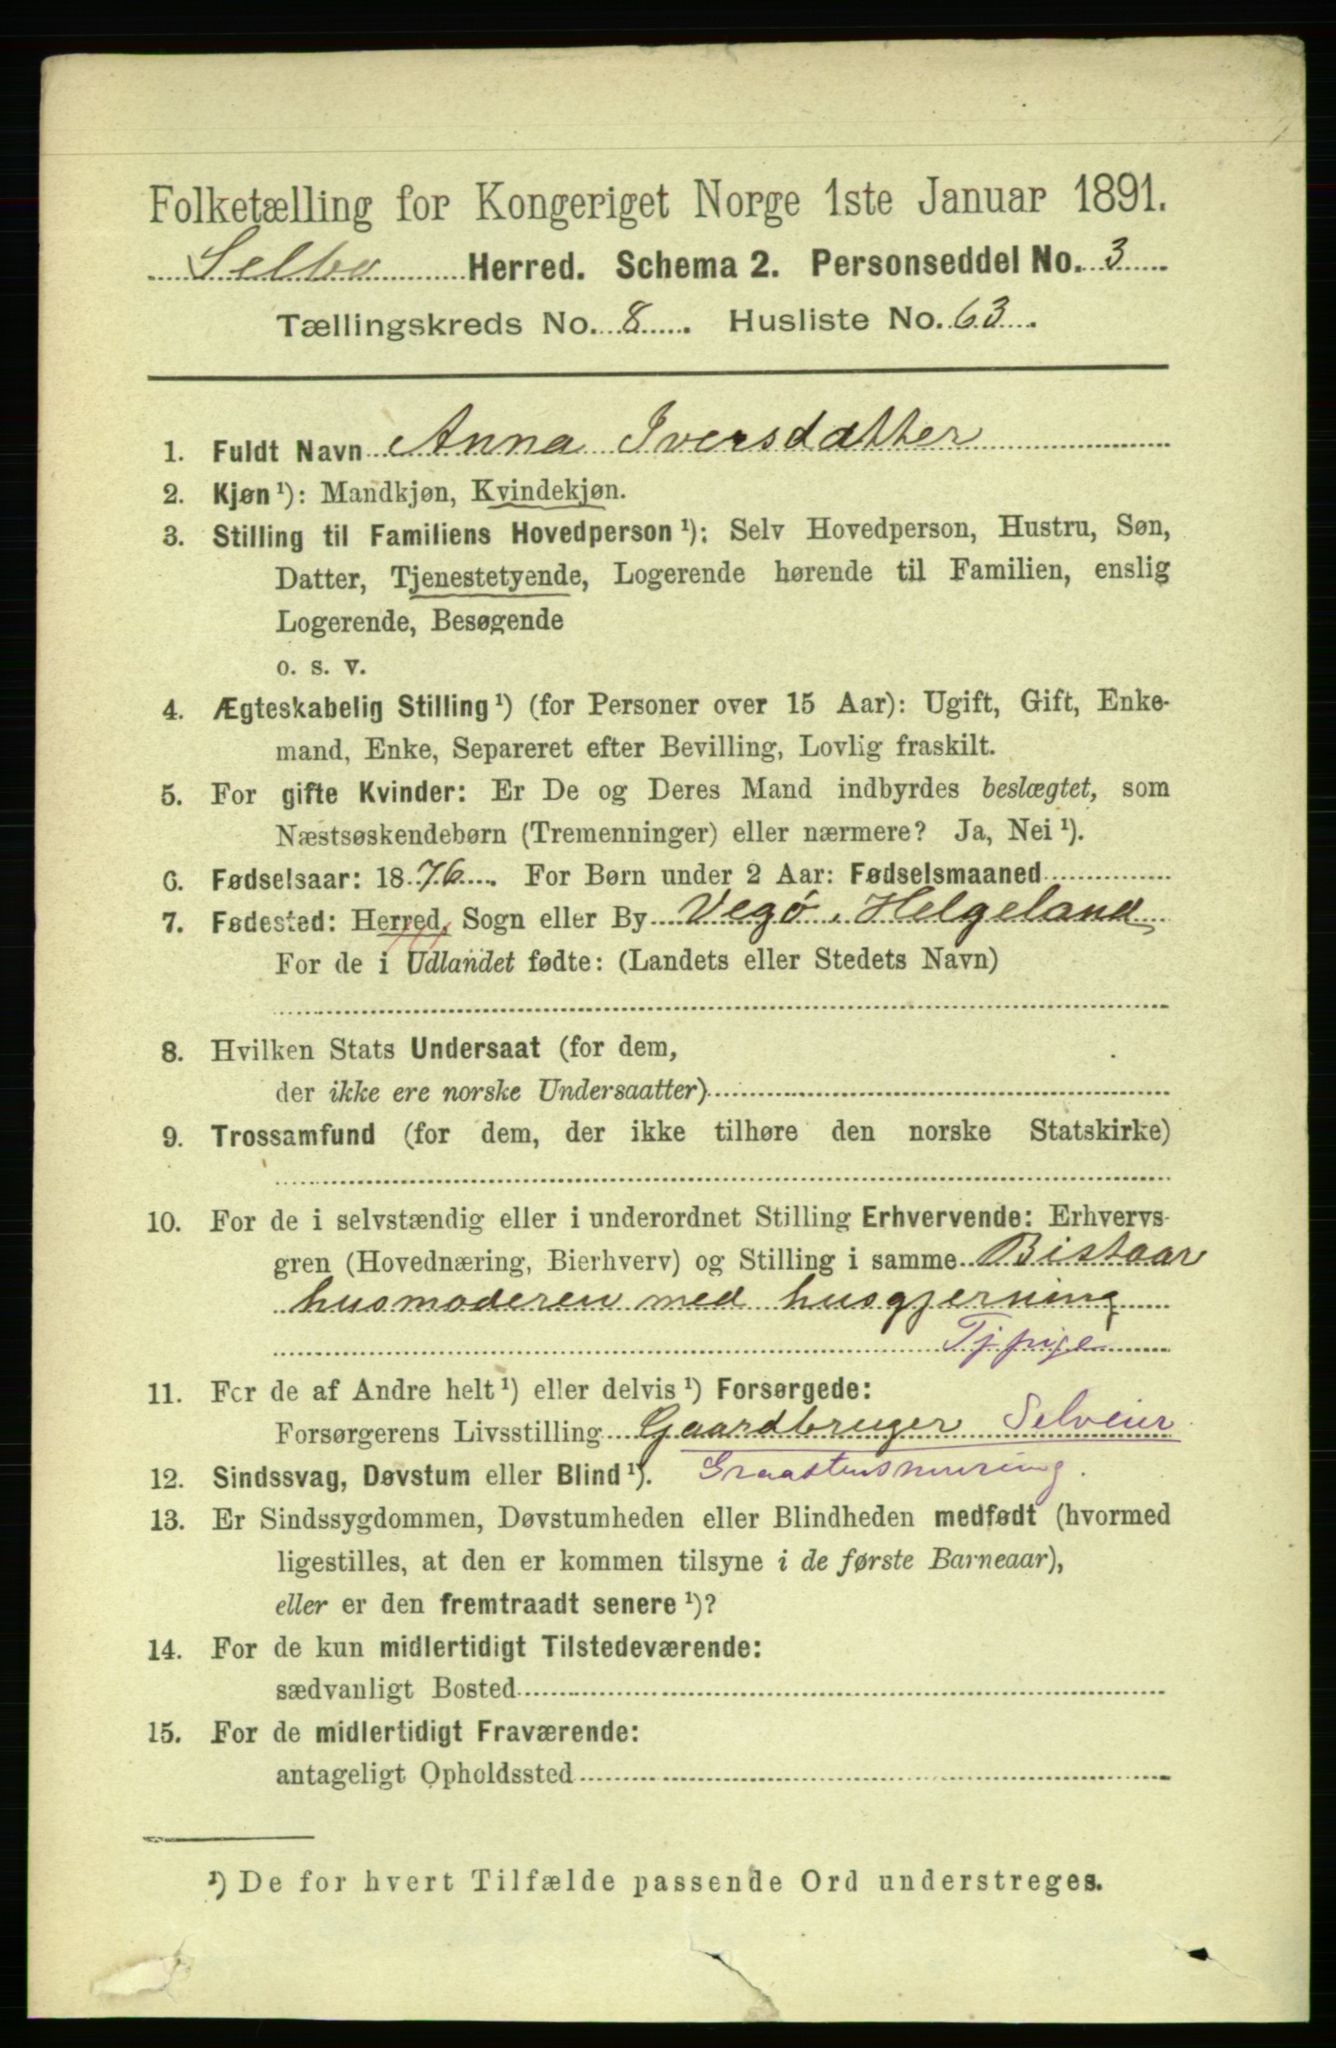 Folketælling for Kongeriget Norge 1ste Januar 1891.
Selbo Herred. Schema 2. Personseddel No. 3
Tællingskreds No. 8. Husliste No. 63.
1. Fuldt Navn Anna Iversdatter
2. Kjøn ¹): Mandkjøn, Kvindekjøn.
3. Stilling til Familiens Hovedperson ¹): Selv Hovedperson, Hustru, Søn,
Datter, Tjenestetyende, Logerende hørende til Familien, enslig
Logerende, Besøgende
o. s. v.
4. Ægteskabelig Stilling ¹) (for Personer over 15 Aar): Ugift, Gift, Enke-
mand, Enke, Separeret efter Bevilling, Lovlig fraskilt.
5. For gifte Kvinder: Er De og Deres Mand indbyrdes beslægtet, som
Næstsøskendebørn (Tremenninger) eller nærmere? Ja, Nei ¹).
6. Fødselsaar: 1876. For Børn under 2 Aar: Fødselsmaaned
7. Fødested: Herred, Sogn eller By Vegø, Helgeland
For de i Udlandet fødte: (Landets eller Stedets Navn)
8. Hvilken Stats Undersaat (for dem,
der ikke ere norske Undersaatter)
9. Trossamfund (for dem, der ikke tilhøre den norske Statskirke)
10. For de i selvstændig eller i underordnet Stilling Erhvervende: Erhvervs-
gren (Hovednæring, Bierhverv) og Stilling i samme Bistaar
husmoderen med husgjerning
Tjpige
11. For de af Andre helt ¹) eller delvis ¹) Forsørgede:
Forsørgerens Livsstilling Gaardbruger Selveier
12. Sindssvag, Døvstum eller Blind ¹).
13. Er Sindssygdommen, Døvstumheden eller Blindheden medfødt (hvormed
ligestilles, at den er kommen tilsyne i de første Barneaar),
eller er den fremtraadt senere ¹)?
14. For de kun midlertidigt Tilstedeværende:
sædvanligt Bosted
15. For de midlertidigt Fraværende:
antageligt Opholdssted
¹) De for hvert Tilfælde passende Ord understreges.